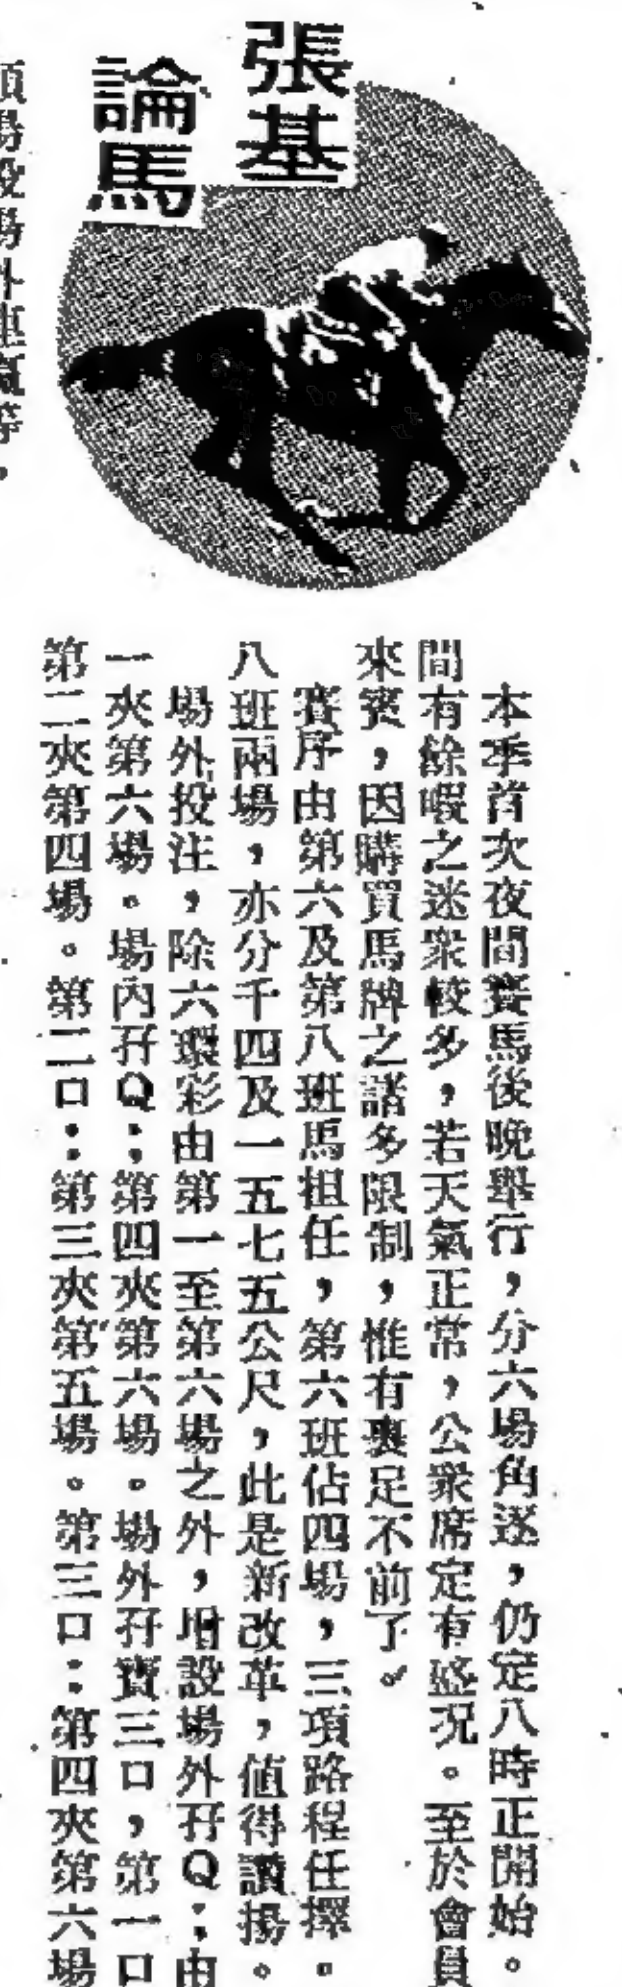 張基
論馬
本季首次夜間賽馬後晚舉行，分六場角逐，仍定八時正開始。
間有餘暇之迷衆較多，若天氣正常，公衆席定有盛況。至於會員
來賓，因購買馬牌之諸多限制，惟有裹足不前了。
賽序由第六及第八班馬担任，第六班佔四場，三項路程任擇。
八班兩場，亦分千四及一五七五公尺，此是新改革，值得讚揚。
場外投注，除六環彩由第一至第六場之外，增設場外孖Q：由
一夾第六場。場內孖Q：第四夾第六場。場外孖寶三口，第一口
第二夾第四場。第二口：第三夾第五場。第三口：第四夾第六場